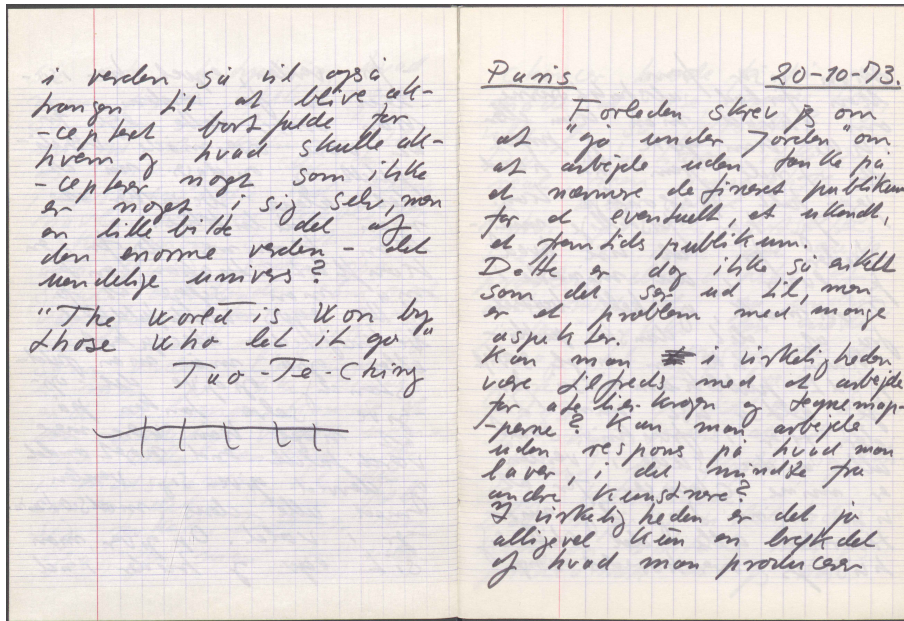 i verden så vil også
trangen til at blive ak-
-cepteret bortfalde for
hvem og hvad skulle ak-
-ceptere noget som ikke
er noget i sig selv, men
en lille bitte del af
den enorme verden - det
uendelige univers?
"The world is won by
those who let it go"
Tao-Te-Ching
Paris 20-10-73.
Forleden skrev jeg om
at "gå under jorden" om
at arbejde uden tanke på
et nærmere defineret publikum
for et eventuelt, et ukendt,
et fremtids publikum.
Dette er dog ikke så enkelt
som det ser ud til, men
er et problem med mange
aspekter.
Kan man i virkeligheden
være tilfreds med at arbejde
for atelier-krogen og tegnemap-
-perne? Kan man arbejde
uden respons på hvad man
laver, i det mindste fra
andre kunstnere?
I virkeligheden er det jo
alligevel kun en brøkdel
af hvad man producerer